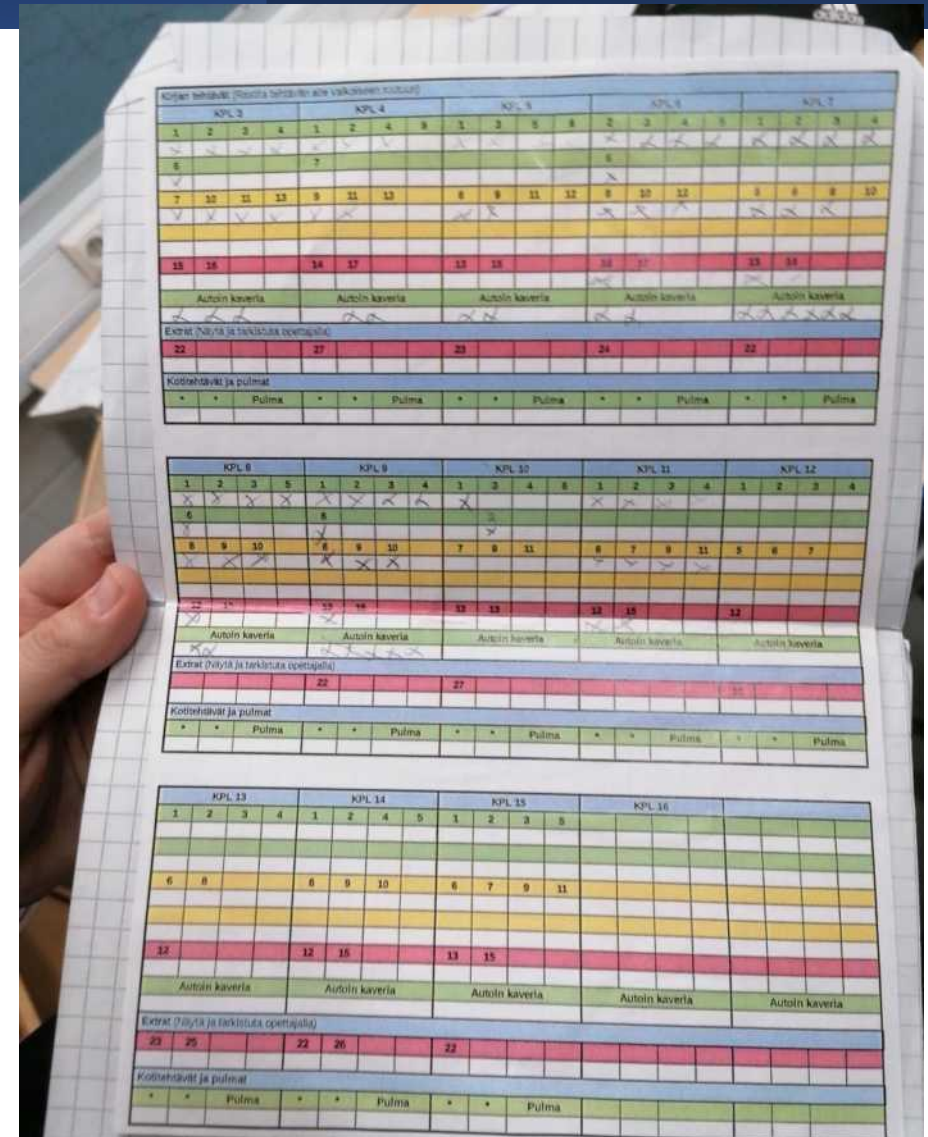 Kirjan tehtävät (Rastita tehtävän alle valkoiseen ruutuun)
KPL 3 KPL 4 KPL 5 KPL 6 KPL 7
1 2 3 4 1 2 4 1 3 2 3 4 5 1 2 3 4
6 7 6
7 10 11 13 9 11 13 8 9 11 12 8 10 12 8 10
15 16 14 17 13 15 13 14
Autoin kaveria Autoin kaveria Autoin kaveria Autoin kaveria Autoin kaveria
Extrat (Näytä ja tarkistuta opettajalla)
22 27 23 24 22
Kotitehtävät ja pulmat
* * Pulma * * Pulma * * Pulma * * Pulma * * Pulma
KPL 8 KPL 9 KPL 10 KPL 11 KPL 12
1 2 3 5 1 2 3 4 1 2 4 1 2 3 4 1 2 3 4
6
8 9 10 9 10 7 8 11 6 7 9 11 5 6 7
12 13 12 15 12
Autoin kaveria Autoin kaveria Autoin kaveria Autoin kaveria Autoin kaveria
Extrat (Näytä ja tarkistuta opettajalla)
22 27
Kotitehtävät ja pulmat
* * Pulma * * Pulma * * Pulma * * Pulma * * Pulma
KPL 13 KPL 14 KPL 15 KPL 16
1 2 3 4 1 2 4 5 1 2 3 5
6 8 8 9 10 6 7 9 11
12 12 15 13 15
Autoin kaveria Autoin kaveria Autoin kaveria Autoin kaveria Autoin kaveria
Extrat (Näytä ja tarkistuta opettajalla)
23 25 22 26 22
Kotitehtävät ja pulmat
* * Pulma * * Pulma * * Pulma